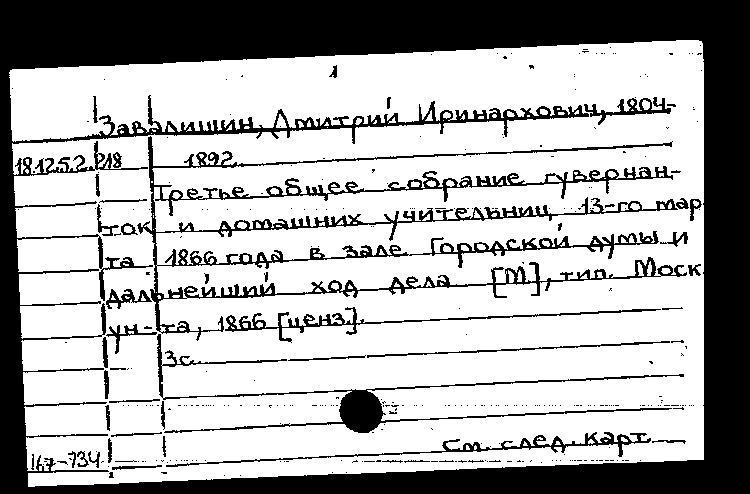 1
Завалишин, Дмитрий Иринархович, 1804-
18.125.2.218 1892.
Третье общее собрание гувернан-
ток и домашних учительниц, 13-го мар
та 1866 года в зале Городской думы и
дальнейший ход дела [М], тип. Моск.
ун-та, 1866 [ценз.].
3 с.
См. след. карт.
167-734